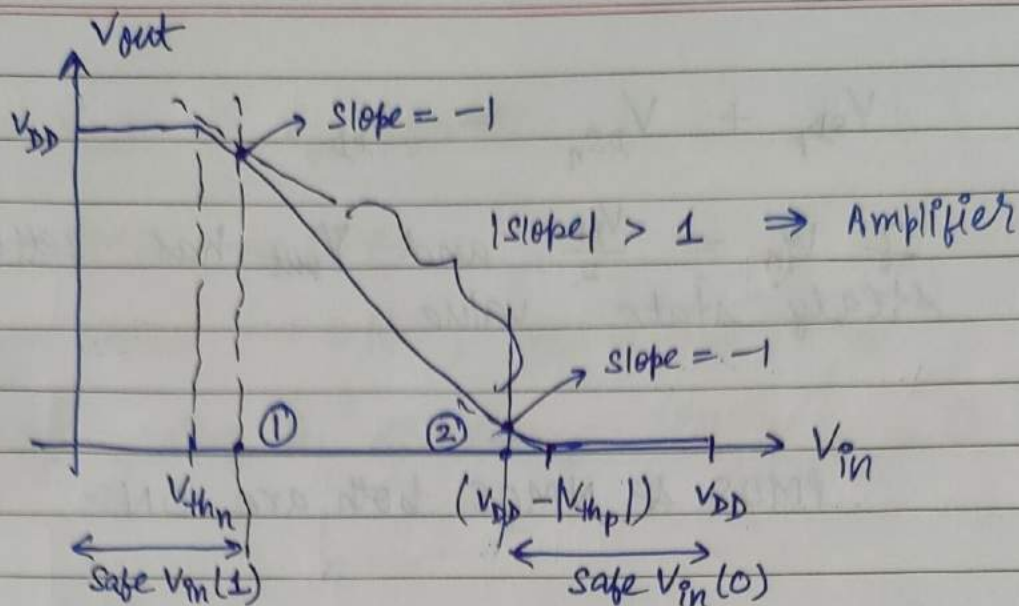 Vout
VDD
slope = -1
|slope| > 1 ⇒ Amplifier
slope = -1
① ② Vin
Vthn (VDD - |Vthp|) VDD
safe Vin(1) safe Vin(0)